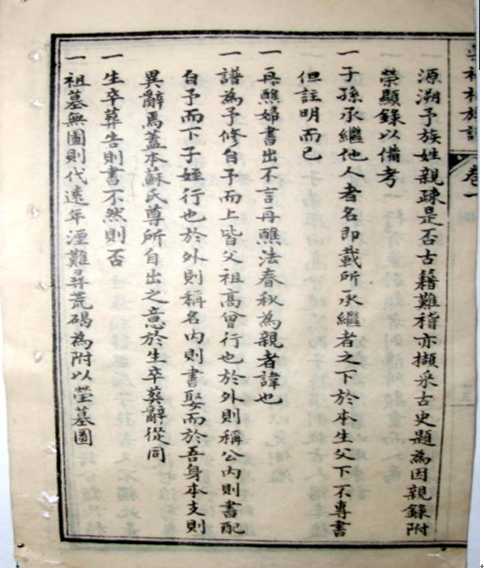 卷一
一源溯予族姓親疎是否古籍難稽亦擷采古史題為因親錄附
榮顯錄以備考
一子孫承繼他人者名即載所承繼者之下於本生父下不專書
但註明而已
一再醮婦書出不言再醮法春秋為親者諱也
一譜為予修自予而上皆父祖高曾行也於外則稱公內則書配
自予而下子姪行也於外則稱名內則書娶而於吾身本支則
異辭焉蓋本蘇氏尊所自出之意於生卒葬辭從同
一生卒葬告則書不然則否
一祖墓無圖則代遠年湮難尋荒碣為附以塋墓圖